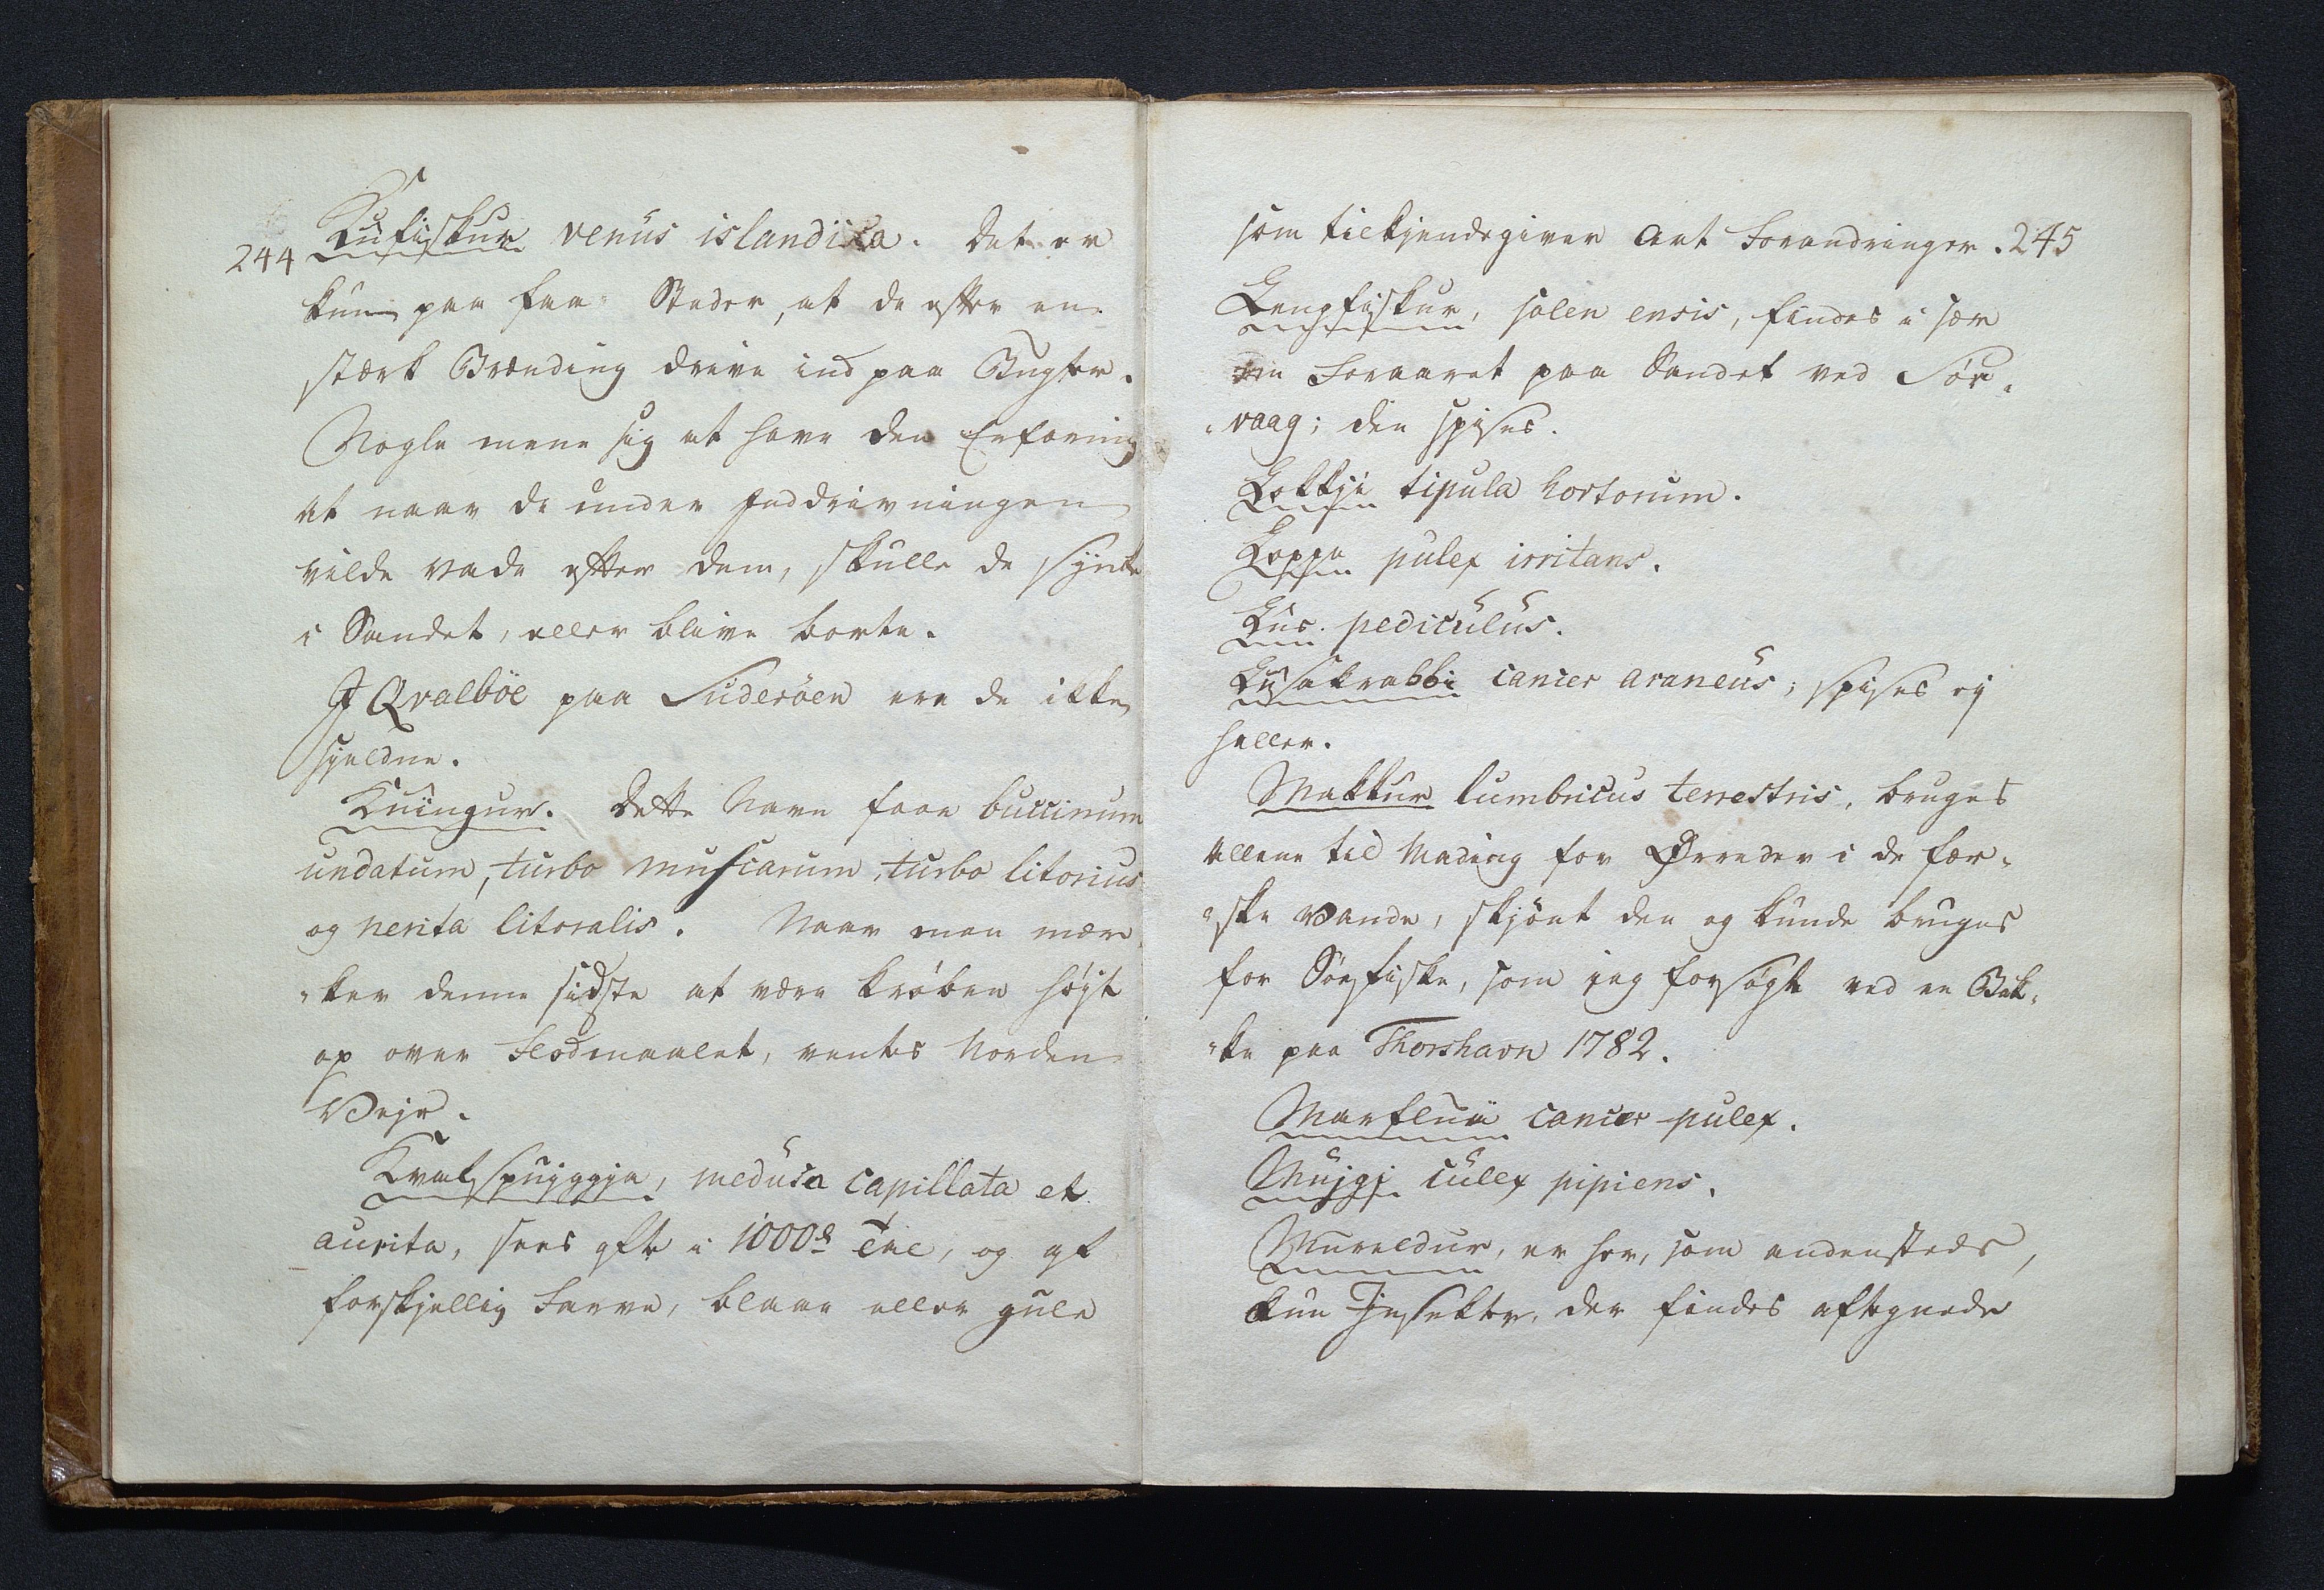 244
Kufiskur venus islandika. Det er
kun paa faa Steder, at de efter en
stærk Brænding drive ind paa Bugter.
Nogle mene sig at have den Erfaring
at naar de under Inddrivningen
vilde vade efter dem, skulle de synke
i Sandet, eller blive borte.
I Qvalböe paa Suderöen ere de ikke
sjeldne.
Kuïngur. Dette Navn faae buccinum
undatum, turbo muscarum, turbo litorius
og nerita litoralis. Naar man mær-
-ker denne sidste at være kröben höjt
op over Flodmaalet, ventes Norden
Vejr.
Kvalspujggja, medusa capillata et
aurita, sees ofte i 1000de Tal, og af
forskjellig Farve, blaae eller gule
som tilkjendegiver Art Forandringer. 245
Langfiskur, solen ensis, findes i sær
om Foraaret paa Sandet ved Sör-
-vaag; den spises.
Lokkji tipula hortorum.
Loppa pulex irritans.
Lus. pediculus.
Lusakrabbi cancer araneus; spises ej
heller.
Makkur lumbricus terrestris, bruges
allene til Mading for Örreder i de fær-
-ske Vande, skjönt den og kunde bruges
for Söefiske, som jeg forsögte ved en Bæk-
-ke paa Thorshavn 1782.
Marfluü cancer pulex.
Mujgj culex pipiens.
Mureldur, er her, som andensteds,
kun Insekter, der findes aftegnede